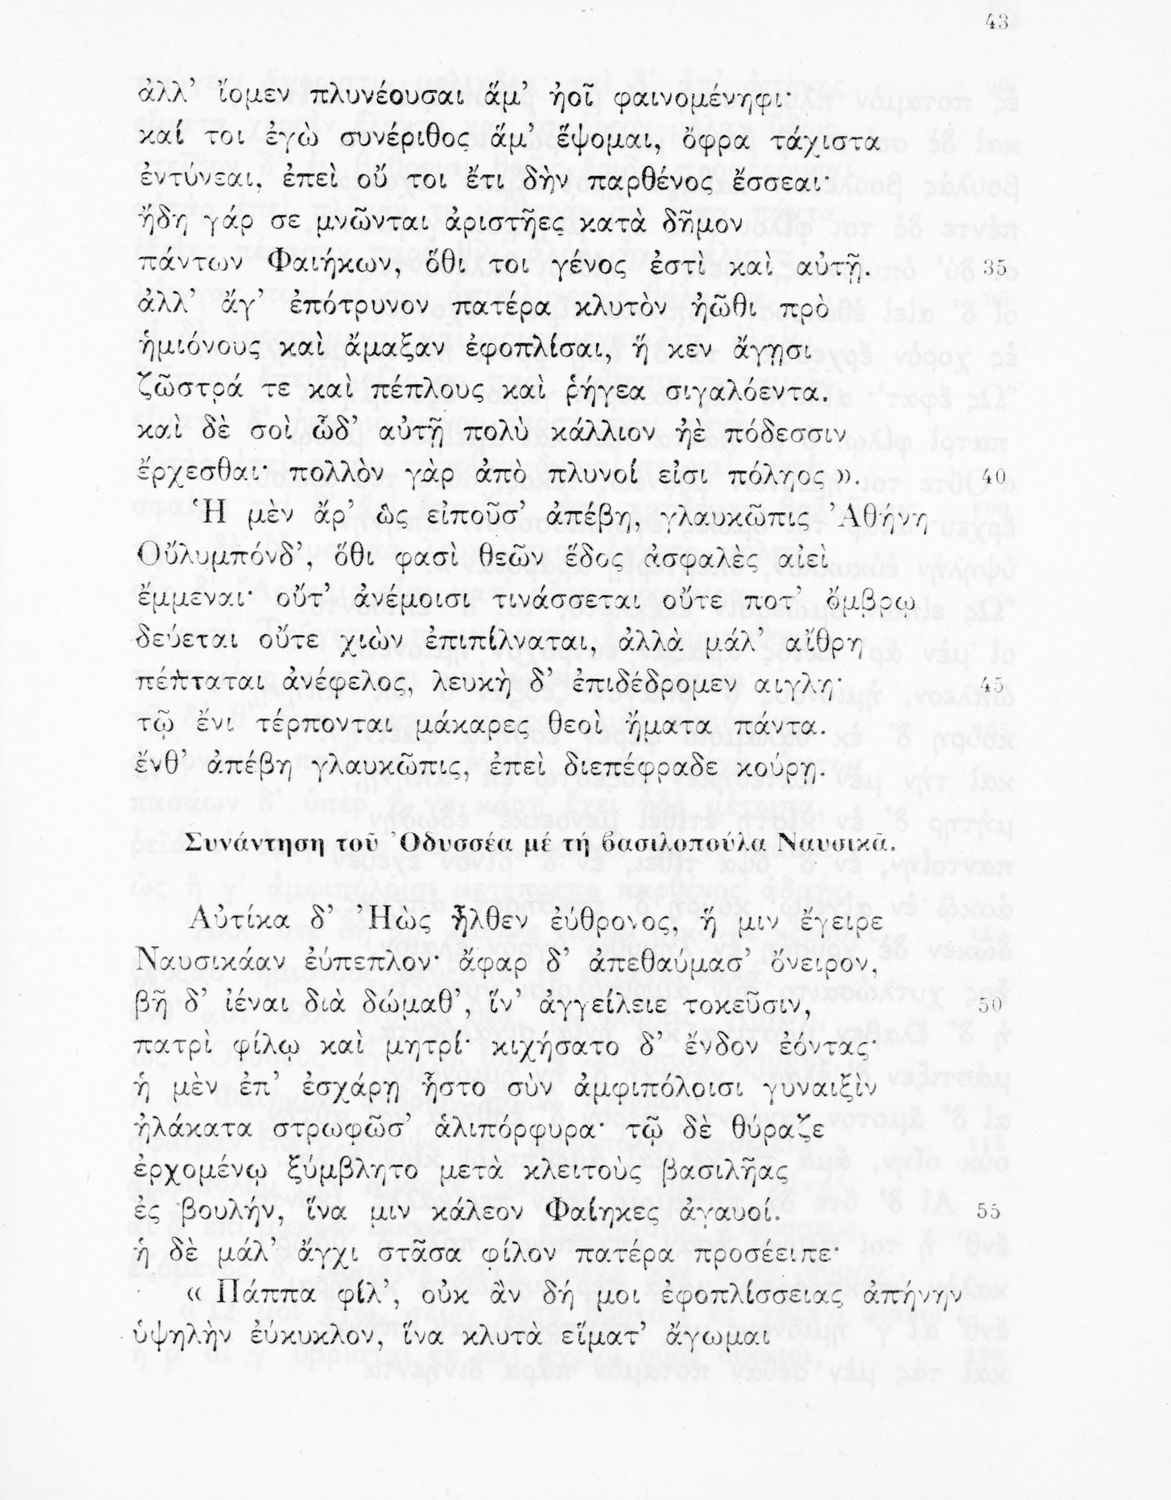 43
ἀλλ’ ἴομεν πλυνέουσαι ἅμ’ ἠοῖ φαινομένηφι·
καί τοι ἐγὼ συνέριθος ἅμ’ ἕψομαι, ὄφρα τάχιστα
ἐντύνεαι, ἐπεὶ οὔ τοι ἔτι δὴν παρθένος ἔσσεαι·
ἤδη γάρ σε μνῶνται ἀριστῆες κατὰ δῆμον
πάντων Φαιήκων, ὅθι τοι γένος ἐστὶ καὶ αὐτῇ. 35
ἀλλ’ ἄγ’ ἐπότρυνον πατέρα κλυτὸν ἠῶθι πρὸ
ἡμιόνους καὶ ἄμαξαν ἐφοπλίσαι, ἥ κεν ἄγῃσι
ζῶστρά τε καὶ πέπλους καὶ ῥήγεα σιγαλόεντα.
καὶ δὲ σοὶ ὧδ’ αὐτῇ πολὺ κάλλιον ἠὲ πόδεσσιν
ἔρχεσθαι· πολλὸν γὰρ ἀπὸ πλυνοί εἰσι πόληος ». 40
Ἡ μὲν ἄρ’ ὣς εἰποῦσ’ ἀπέβη, γλαυκῶπις Ἀθήνη
Οὔλυμπόνδ’, ὅθι φασὶ θεῶν ἕδος ἀσφαλὲς αἰεὶ
ἔμμεναι· οὔτ’ ἀνέμοισι τινάσσεται οὔτε ποτ’ ὄμβρῳ
δεύεται οὔτε χιὼν ἐπιπίλναται, ἀλλὰ μάλ’ αἴθρη
πέπταται ἀνέφελος, λευκὴ δ’ ἐπιδέδρομεν αιγλη· 45
τῷ ἔνι τέρπονται μάκαρες θεοὶ ἤματα πάντα.
ἔνθ’ ἀπέβη γλαυκῶπις, ἐπεὶ διεπέφραδε κούρῃ.
Συνάντηση τοῦ Ὀδυσσέα μέ τή βασιλοπούλα Ναυσικᾶ.
Αὐτίκα δ’ Ἠὼς ἦλθεν ἐύθρονος, ἥ μιν ἔγειρε
Ναυσικάαν ἐύπεπλον· ἄφαρ δ’ ἀπεθαύμασ’ ὄνειρον,
βῆ δ’ ἰέναι διὰ δώμαθ’, ἵν’ ἀγγείλειε τοκεῦσιν, 50
πατρὶ φίλῳ καὶ μητρί· κιχήσατο δ’ ἔνδον ἐόντας·
ἡ μὲν ἐπ’ ἐσχάρῃ ἧστο σὺν ἀμφιπόλοισι γυναιξὶν
ἠλάκατα στρωφῶσ’ ἁλιπόρφυρα· τῷ δὲ θύραζε
ἐρχομένῳ ξύμβλητο μετὰ κλειτοὺς βασιλῆας
ἐς βουλήν, ἵνα μιν κάλεον Φαίηκες ἀγαυοί. 55
ἡ δὲ μάλ’ ἄγχι στᾶσα φίλον πατέρα προσέειπε·
« Πάππα φίλ’, οὐκ ἂν δή μοι ἐφοπλίσσειας ἀπήνην
ὑψηλὴν ἐύκυκλον, ἵνα κλυτὰ εἵματ’ ἄγωμαι